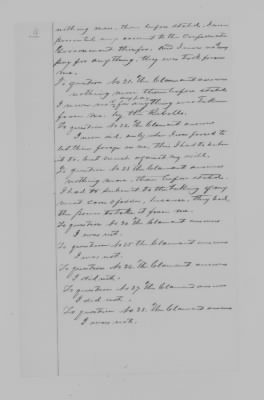 nothing more than before stated. I never
presented any account to the Confederate
Government therefor. And I never got any
pay for anything, they ever took from
me.
To question No 21. The Claimant answers
nothing more than before stated
I never got pay for anything was taken
from me. by the Rebells.
To question No 22. The Claimant answers
I never did, only when I was forced to
let them forage on me, then I had to submit
it to, but much against my will.
To question No 23 the Claimant answers
nothing more, than before stated.
I had to submit to the taking of my
meat corn &amp; fodder, because, they had
the power to take it from me.
To question No 24 the Claimant answers
I was not.
To question No 25 the Claimant answers
I was not.
To question No 26 the Claimant answers
I did not.
To question No 27 the Claimant answers
I did not.
To question No 28. the Claimant answers
I was not.